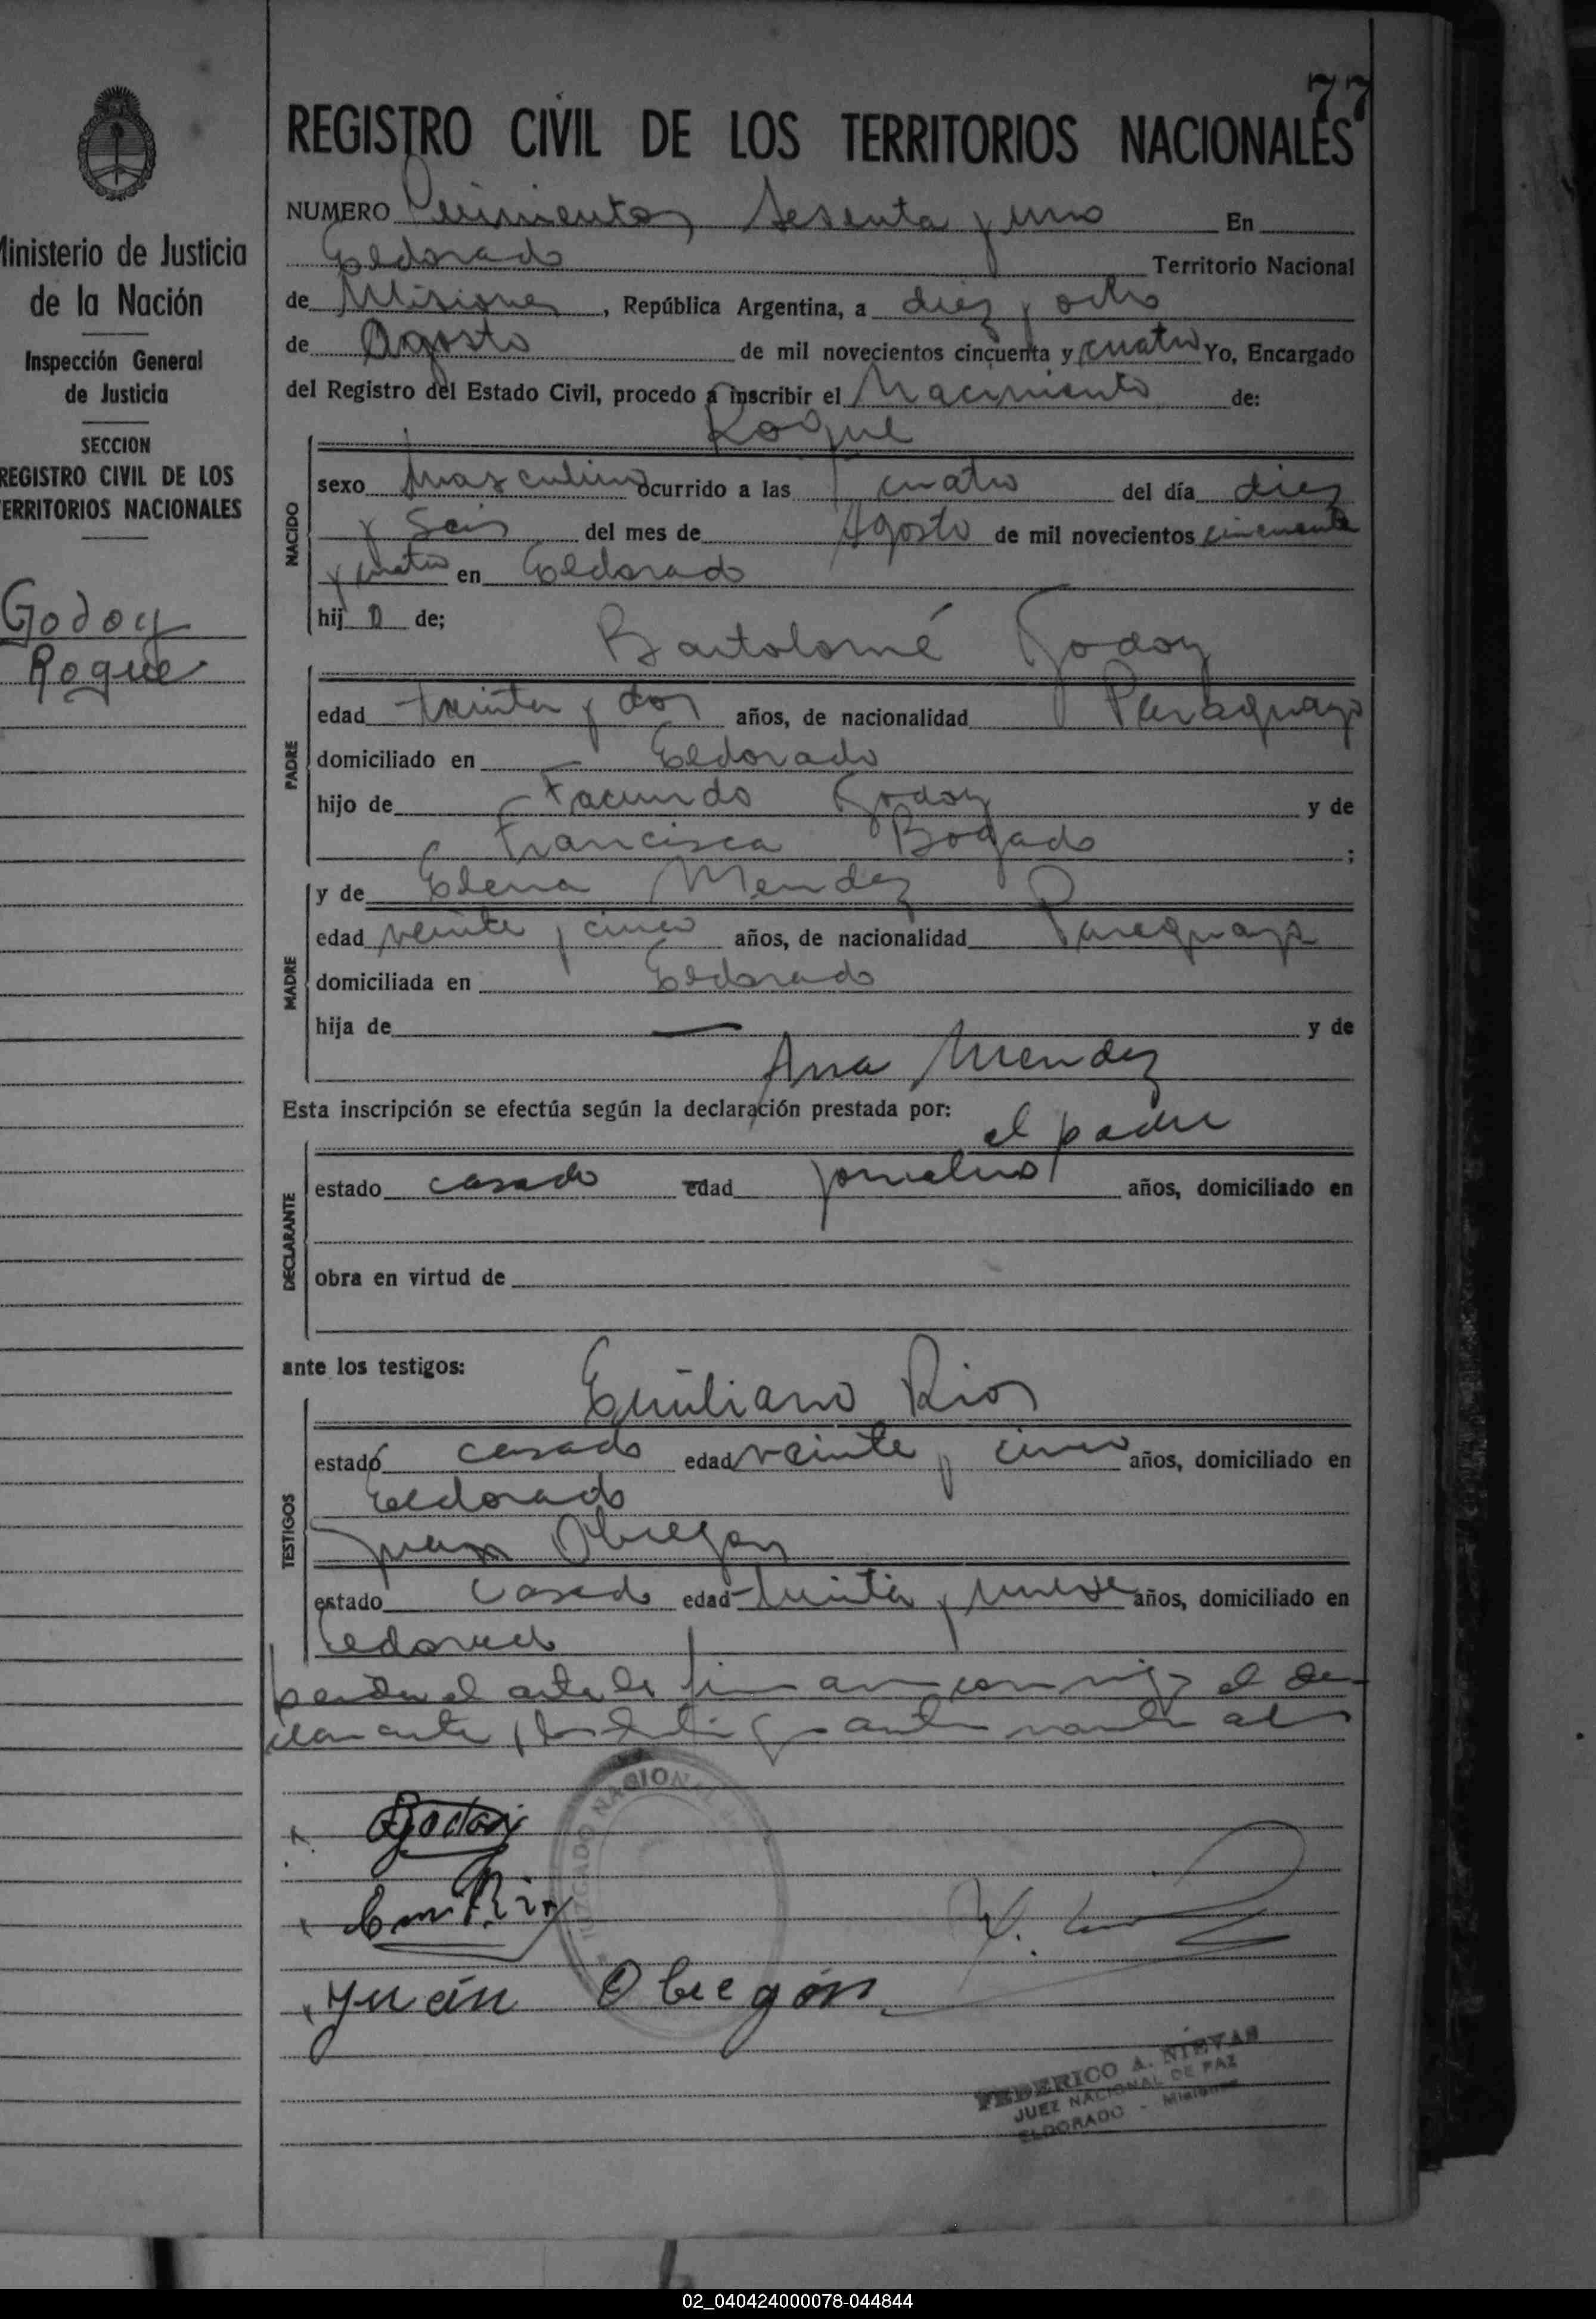 77
REGISTRO CIVIL DE LOS TERRITORIOS NACIONALES
Ministerio de Justicia
de la Nación
Inspección General
de Justicia
SECCION
REGISTRO CIVIL DE LOS
TERRITORIOS NACIONALES
Godoy
Roque
NUMERO sesenta y uno En
Eldorado Territorio Nacional
de Misiones, República Argentina, a diez y ocho
de Agosto de mil novecientos cincuenta y cuatro Yo, Encargado
del Registro del Estado Civil, procedo a inscribir el Nacimiento de:
Roque
NACIDO
sexo masculino ocurrido a las cuatro del día diez
y seis del mes de Agosto de mil novecientos cincuenta
y cuatro en Eldorado
hijo de;
Bartolomé Godoy
PADRE
edad treinta y dos años, de nacionalidad Paraguayo
domiciliado en Eldorado
hijo de Facundo Godoy y de
Francisca Bogado ;
MADRE
y de Elena Mendez
edad veinte y cinco años, de nacionalidad Paraguaya
domiciliada en Eldorado
hija de — y de
Ana Mendez
Esta inscripción se efectúa según la declaración prestada por:
el padre
DECLARANTE
estado casado edad jornalero años, domiciliado en
obra en virtud de
ante los testigos:
Emiliano Rios
TESTIGOS
estado casado edad veinte y cinco años, domiciliado en
Eldorado
Juan Obregon
estado casado edad treinta y nueve años, domiciliado en
Eldorado
el acta la firman conmigo el de-
clarante y los testigos
JUZGADO NACIONAL
Godoy
Em Rios
Juán Obregón
FEDERICO A. NIEVAS
JUEZ NACIONAL DE PAZ
ELDORADO - Misiones
02_040424000078-044844